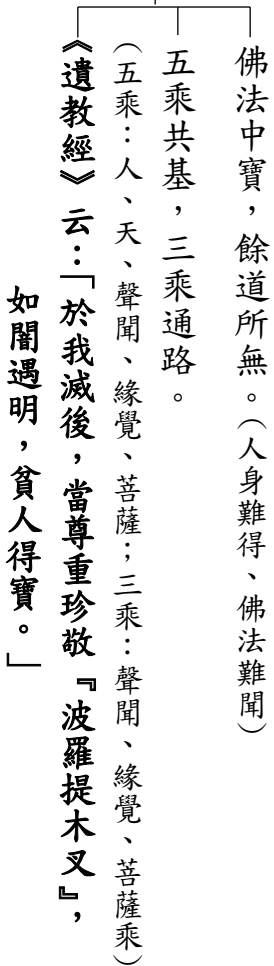 佛法中寶，餘道所無。（人身難得、佛法難聞）
五乘共基，三乘通路。
（五乘：人、天、聲聞、緣覺、菩薩；三乘：聲聞、緣覺、菩薩乘）
《遺教經》云：「於我滅後，當尊重珍敬『波羅提木叉』，
如闇遇明，貧人得寶。」